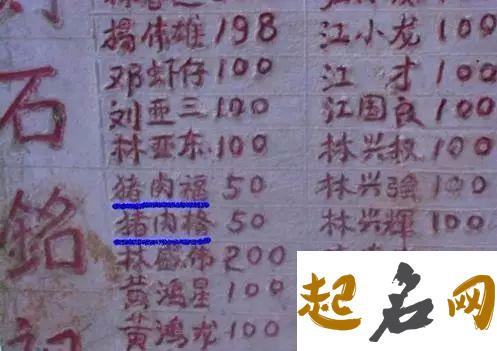 石銘
揚偉雄 198 江小龙 100
邓虾仔 100 江才 100
刘亚三 100 江国良 100
林亚东 100 林兴权 100
猪肉福 50 林兴強 100
猪肉格 50 林兴輝 100
林盛伟 200
黄鸿星 100
黄鸿龙 100
起名网